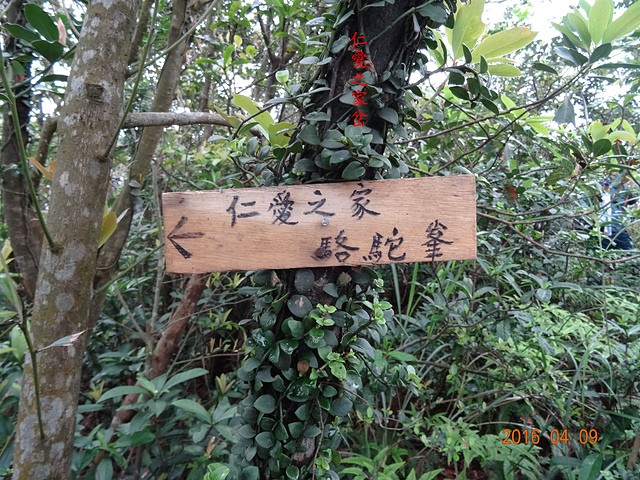 仁愛之家岔
仁愛之家
← 駱駝峯
2016 04 09